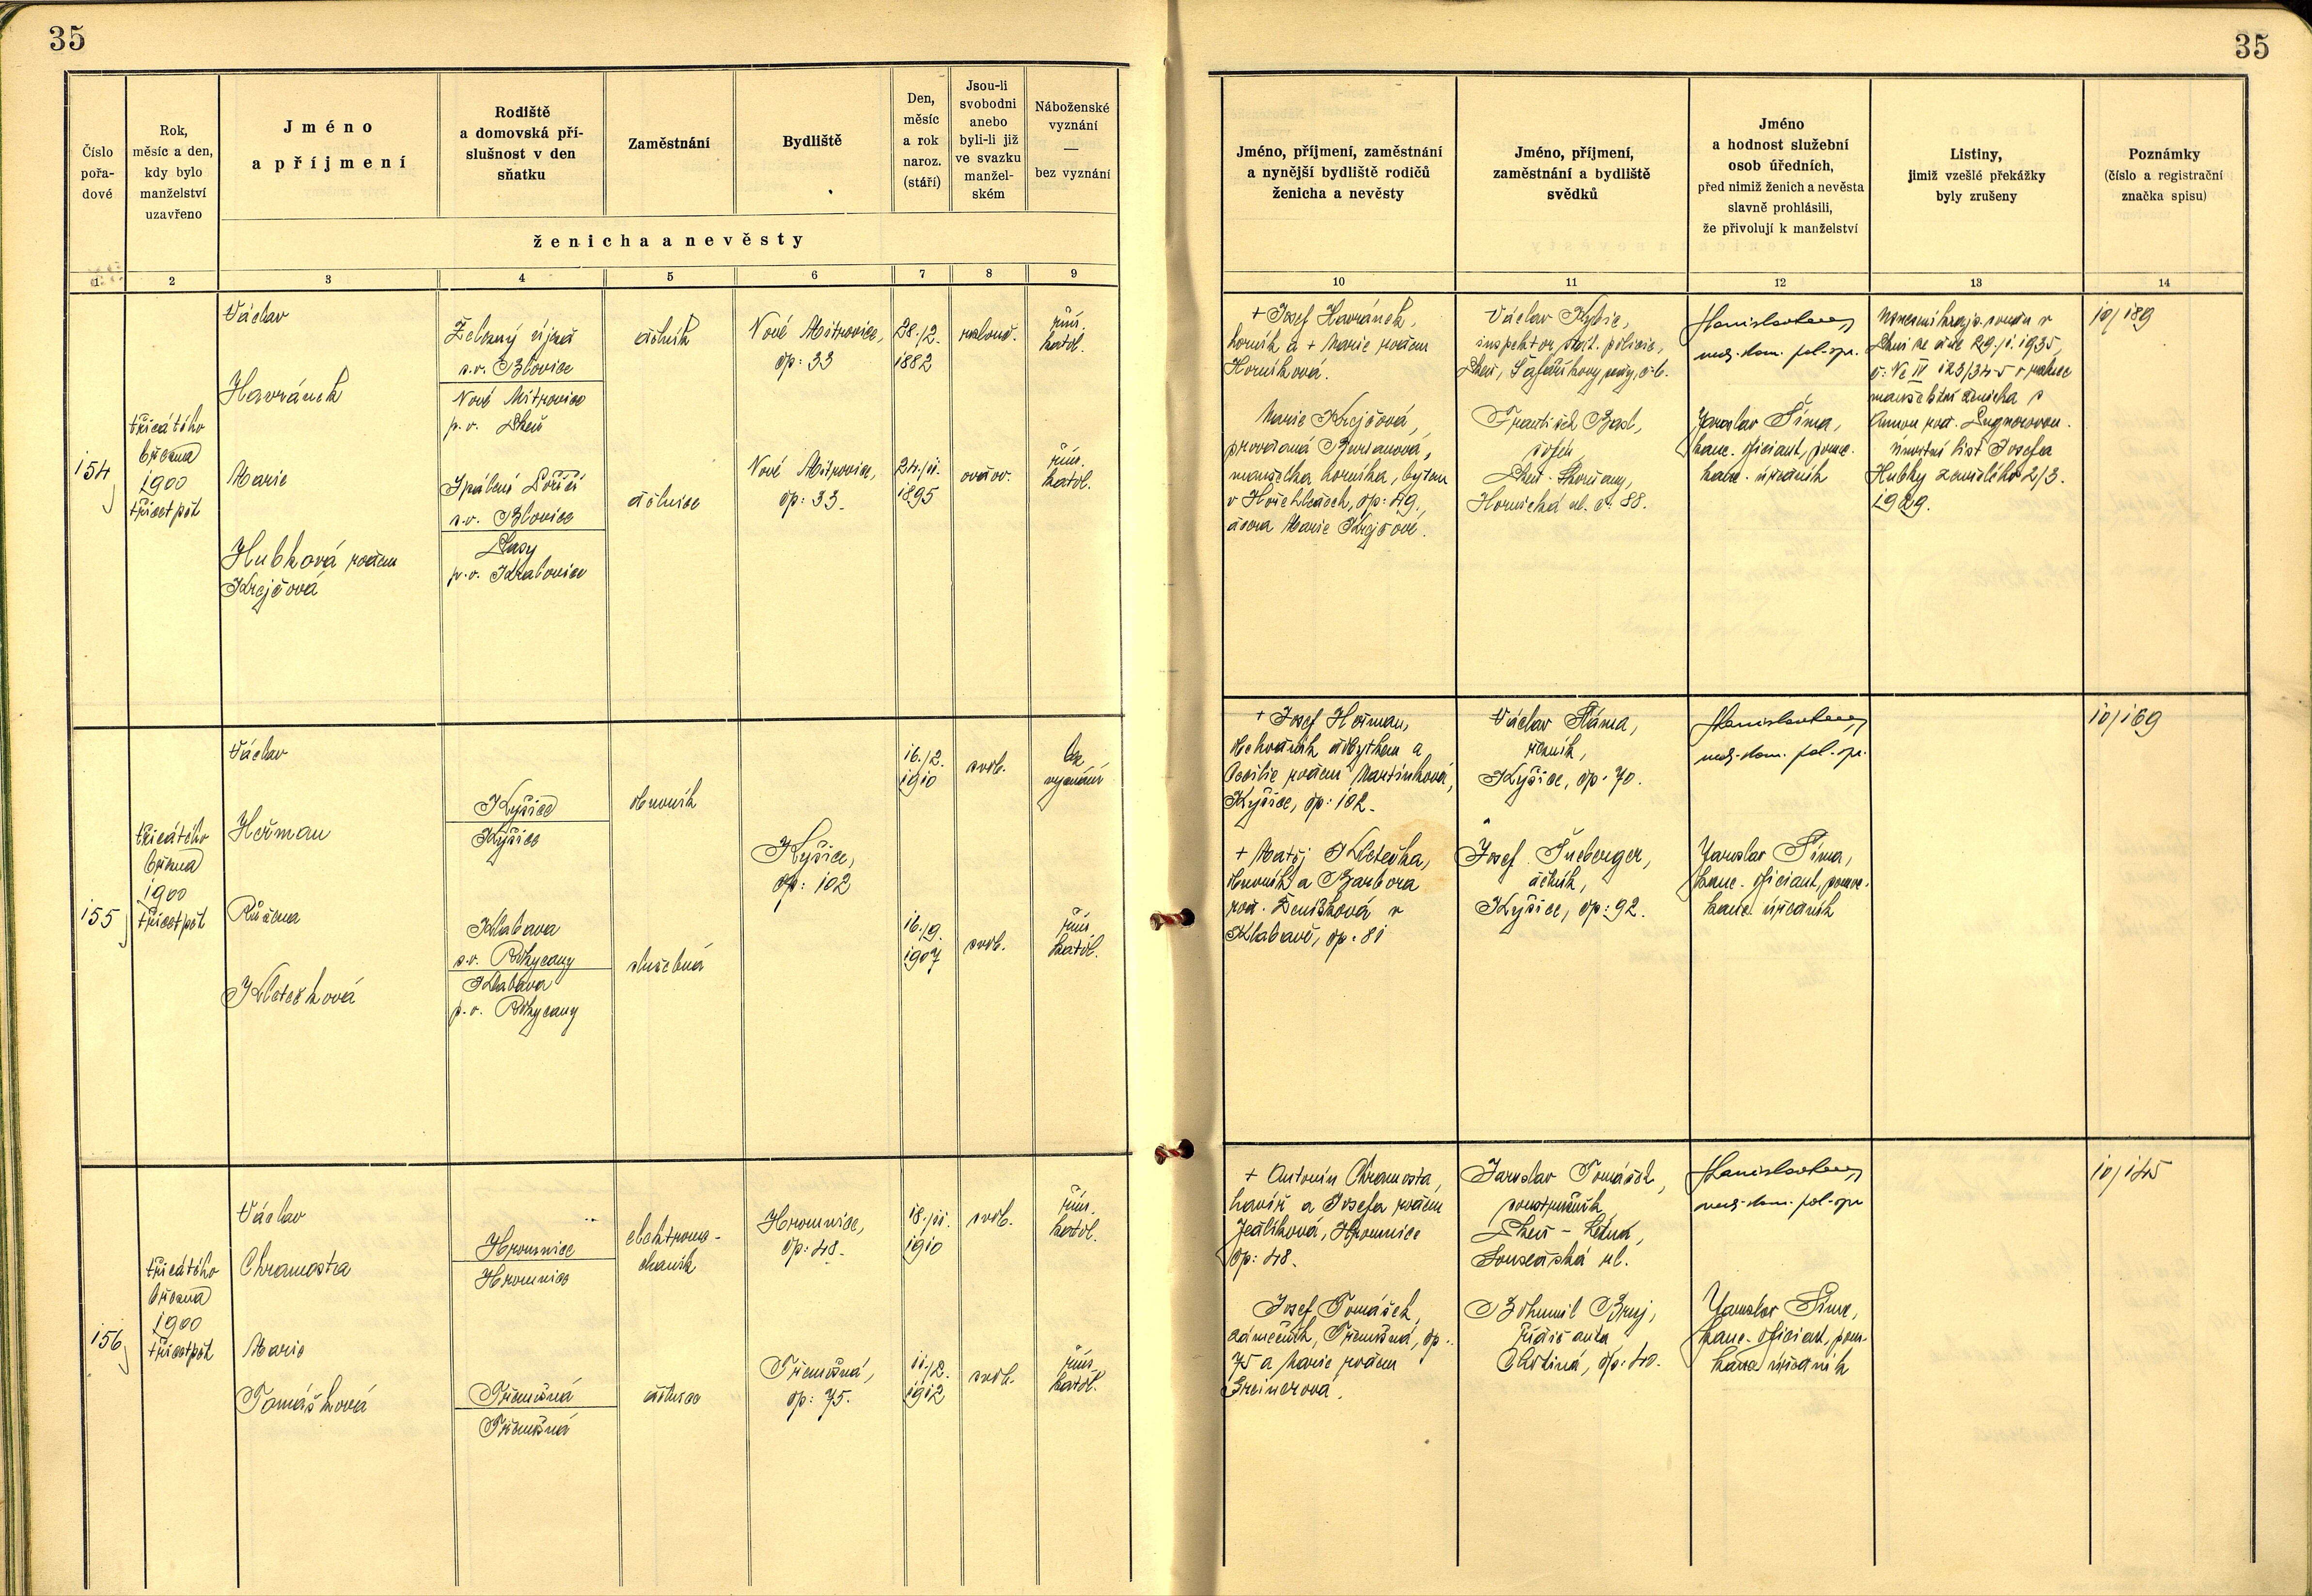 35
35
Číslo pořa-dové
Rok, měsíc a den, kdy bylo manželství uzavřeno
Jméno a příjmení
Rodiště a domovská pří-slušnost v den sňatku
Zaměstnání
Bydliště
Den, měsíc a rok naroz. (stáří)
Jsou-li svobodni anebo byli-li již ve svazku manžel-ském
Náboženské vyznání — bez vyznání
ženicha a nevěsty
Jméno, příjmení, zaměstnání a nynější bydliště rodičů ženicha a nevěsty
Jméno, příjmení, zaměstnání a bydliště svědků
Jméno a hodnost služební osob úředních, před nimiž ženich a nevěsta slavně prohlásili, že přivolují k manželství
Listiny, jimiž vzešlé překážky byly zrušeny
Poznámky (číslo a registrační značka spisu)
1 2 3 4 5 6 7 8 9 10 11 12 13 14
154
třicátého
března
1900
třicetpět
Václav
Havránek
Železný újezd
s.o. Blovice
Nové Mitrovice
p.o. Plzeň
dělník
Nové Mitrovice,
čp: 33
28./2.
1882
rozlouč.
řím.
katol.
Marie
Hubková rodem
Krejčová
Spálené Poříčí
s.o. Blovice
Plasy
p.o. Kralovice
dělnice
Nové Mitrovice,
čp: 33.
24./11.
1895
ovdov.
řím.
katol.
+ Josef Havránek,
horník a + Marie rodem
Horníková.
Marie Krejčová,
provdaná Burianová,
manželka horníka, bytem
čp: 49,
dcera Marie Krejčové.
Václav
inspektor stát. policie,
Plzeň, Šafaříkovy sady, č. 6.
František
Plzeň
Hornická ul. č. 88.
pol. spr.
Jaroslav Šíma,
kanc. oficiant, pomc.
kanc. úředník
Usnesení krajs. soudu v
Plzni ze dne 29./1. 1935,
manželství ženicha s
Annou roz.
úmrtní list Josefa
Hubky zemřelého 2/3.
1929.
10/189
155
třicátého
března
1900
třicetpět
Václav
Heřman
Kyšice
Kyšice
obuvník
Kyšice,
čp: 102
16./2.
1910
svob.
bez
vyznání
Růžena
Kletečková
Klabava
s.o. Rokycany
Klabava
p.o. Rokycany
služebná
16./9.
1907
svob.
řím.
katol.
+ Josef Heřman,
obchodník dobytkem a
Cecilie rodem Martínková,
Kyšice, čp: 102.
+ Matěj Kletečka,
obuvník a Barbora
roz. v
Klabavě, čp: 81
Václav Sláma,
řezník,
Kyšice, čp: 70.
Josef
dělník,
Kyšice, čp: 92.
pol. spr.
Jaroslav Šíma,
kanc. oficiant, pomc.
kanc. úředník
10/169
156
třicátého
března
1900
třicetpět
Václav
Chramosta
Hromnice
Hromnice
elektrome-
chanik
Hromnice,
čp: 48.
18./11.
1910
svob.
řím.
katol.
Marie
Tomášková
Třemošná
Třemošná
dělnice
Třemošná,
čp: 75.
11./2.
1912
svob.
řím.
katol.
+ Antonín Chramosta,
havíř a Josefa rodem
Jedličková, Hromnice
čp: 48.
Josef Tomášek,
zámečník, Třemošná, čp:
75 a Marie rodem
Greinerová.
Jaroslav Tomášek,
soustružník,
Plzeň - Letná,
ul.
Bohumil
řidič auta
čp: 40.
pol. spr
Jaroslav Šíma,
kanc. oficiant, pom.
kanc. úředník
10/145